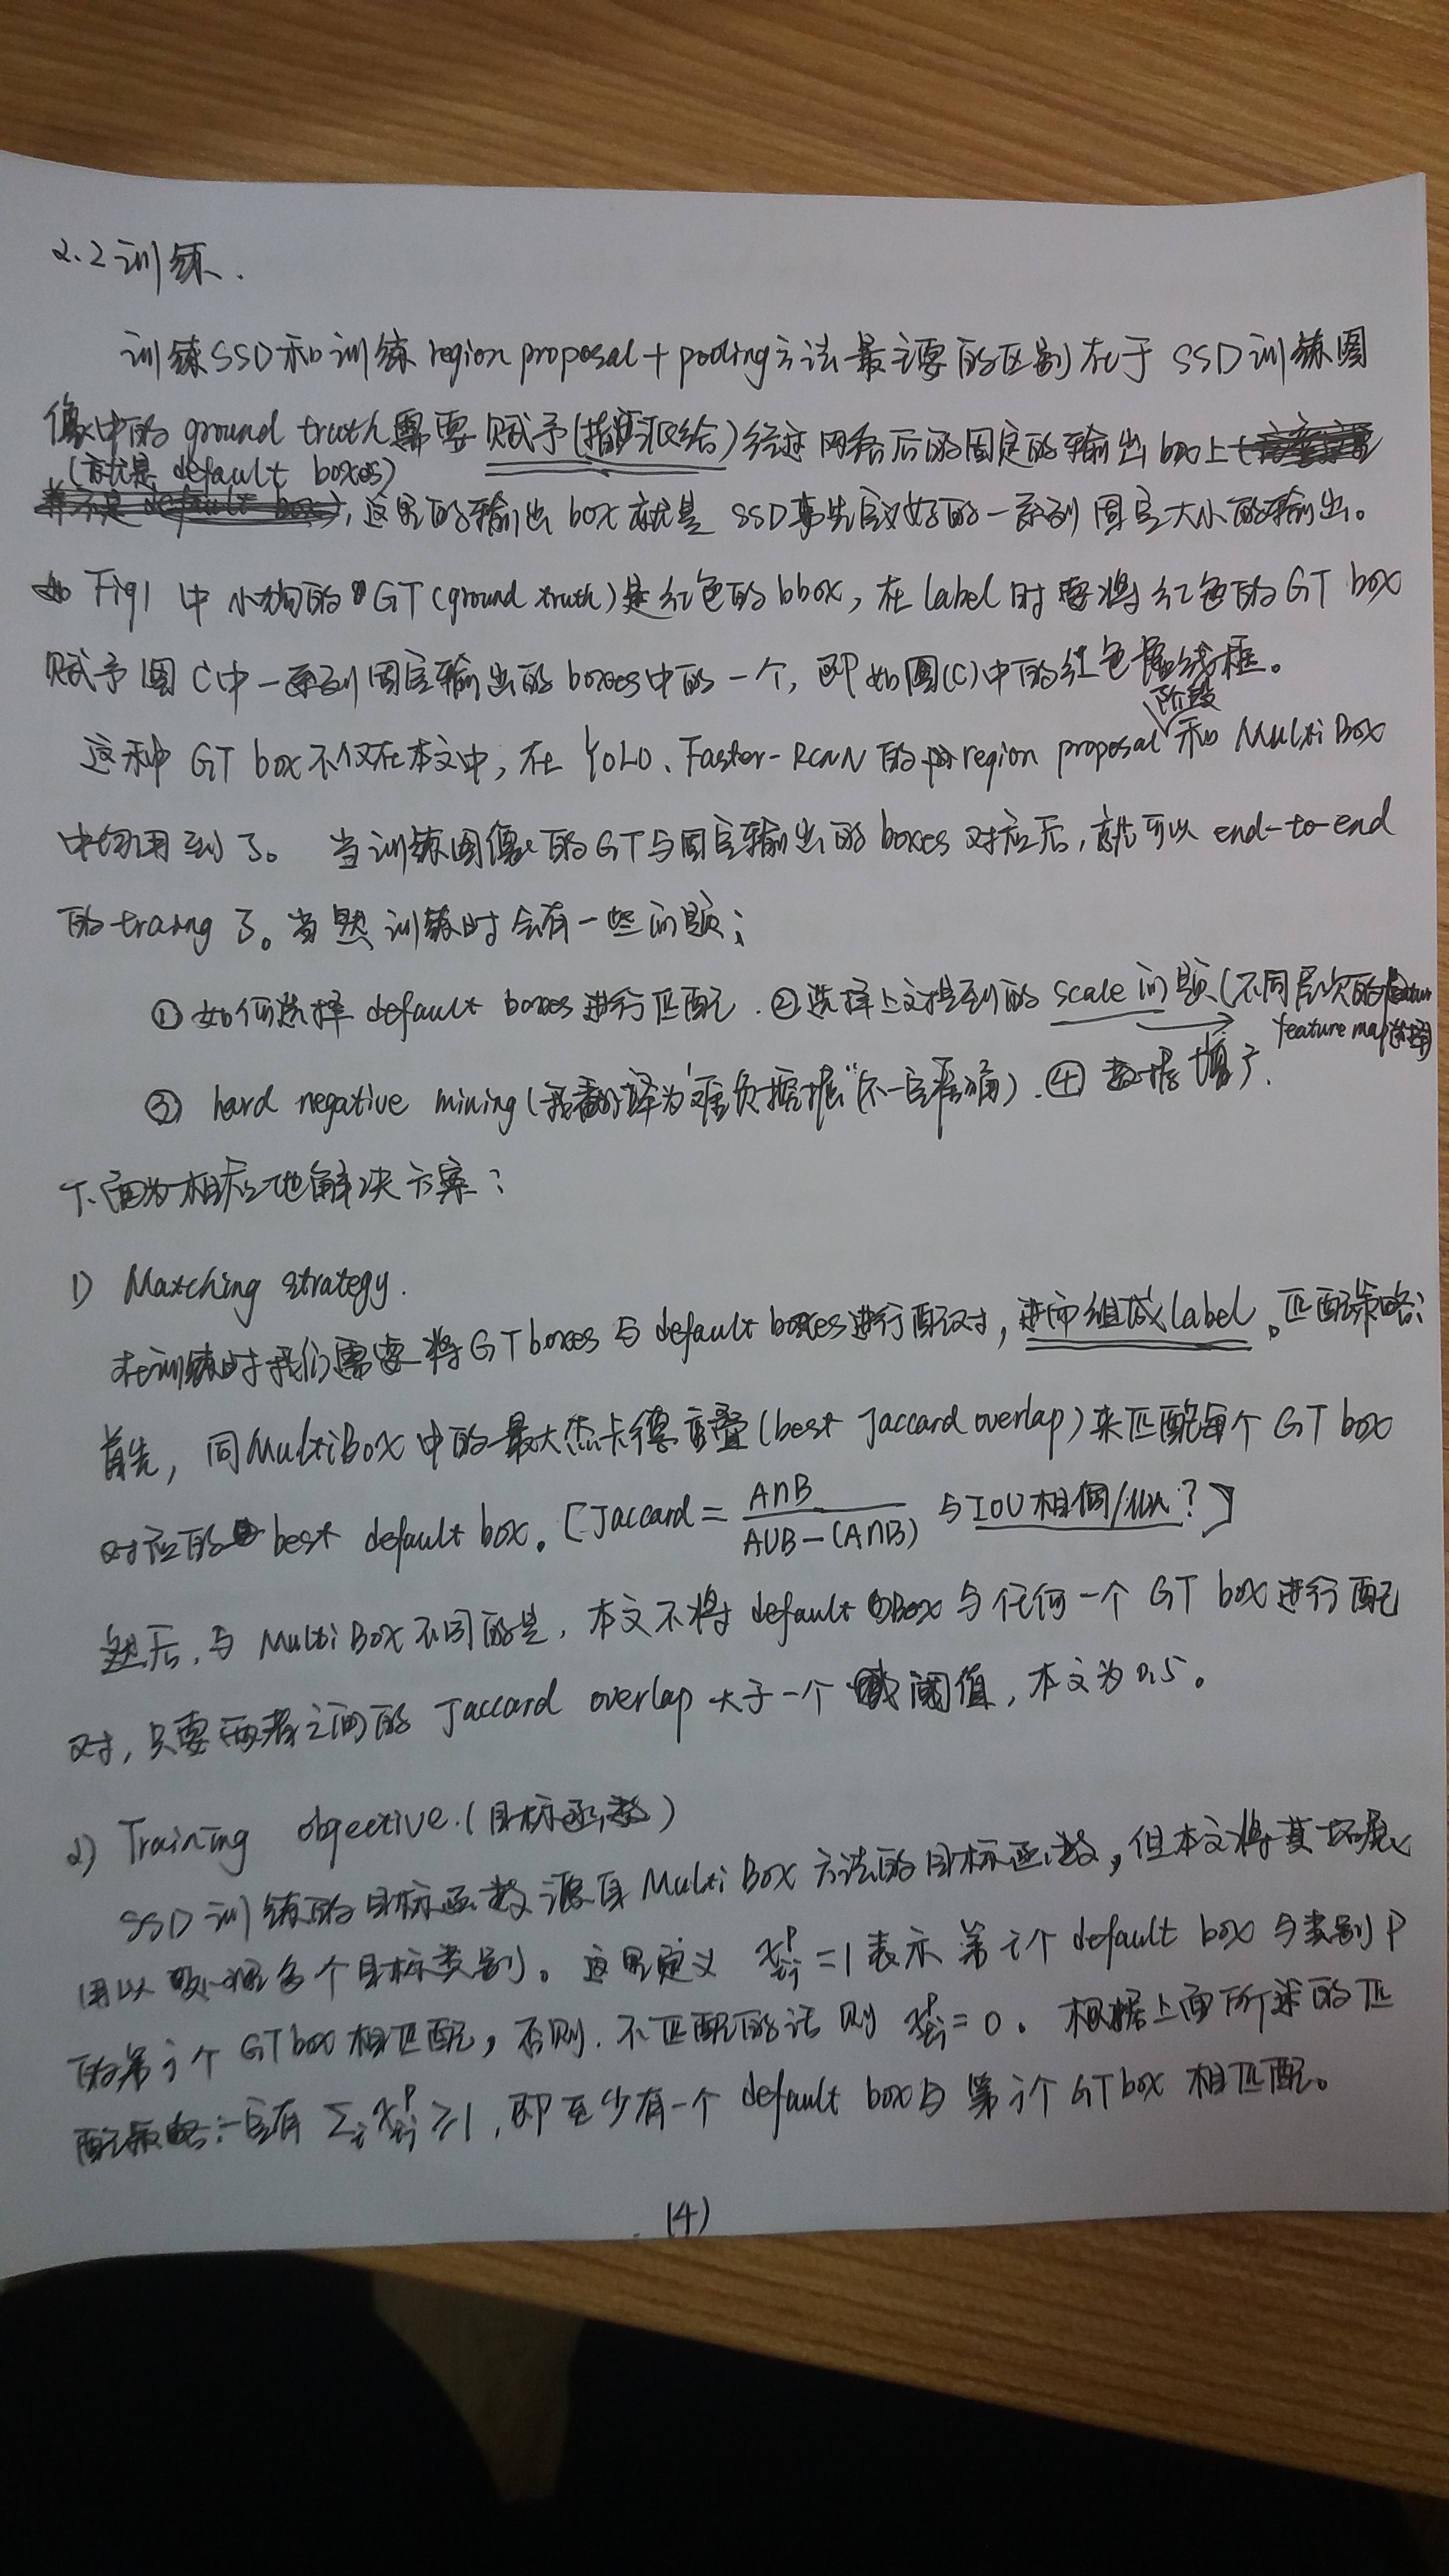 2.2 训练.
训练SSD和训练region proposal + pooling方法最主要的区别在于SSD训练图
像中的 ground truth需要赋予(指派给)经过网络后的固定的输出box上
(就是 default boxes)
,这里的输出box就是 SSD事先定义好的一系列固定大小的输出。
如Fig1 中小狗的GT(ground truth)是红色的bbox,在label时要将红色的GT box
赋予图C中一系列固定输出的boxes中的一个,即如图(C)中的红色虚线框。
阶段
这种GT box不仅在本文中,在YOLO、Faster-RCNN的region proposal和MultiBox
中均用到了。当训练图像的GT与固定输出的boxes对应后,就可以end-to-end
的traing了。当然训练时会有一些问题;
①如何选择default boxes进行匹配.②选择上文提到的scale问题(不同层次的
feature map选择)
③ hard negative mining(我翻译为“难负挖掘”(不一定准确).④数据填了.
下面为相应地解决方案:
1) Matching strategy.
在训练时我们需要将GT boxes与default boxes进行配对,进而组成label。匹配策略:
首先,同MultiBox中的最大杰卡德重叠(best Jaccard overlap)来匹配每个GT box
对应的best default box。[Jaccard = A∩B / A∪B-(A∩B) 与IOU相同 ?]
然后,与MultiBox不同的是,本文不将default Box与任何一个GT box进行配
对,只要两者之间的Jaccard overlap大于一个阈值,本文为0.5。
2) Training objective.(目标函数)
SSD训练的目标函数源自MultiBox方法的目标函数,但本文将其拓展
用以处理多个目标类别。这里定义 x_{ij}^p=1表示第i个default box与类别P
的第j个GT box相匹配,否则.不匹配的话则 x_{ij}^p=0。根据上面所述的匹
配策略:一定有 Σ_i x_{ij}^p ≥1,即至少有一个default box与第j个GT box相匹配。
(4)